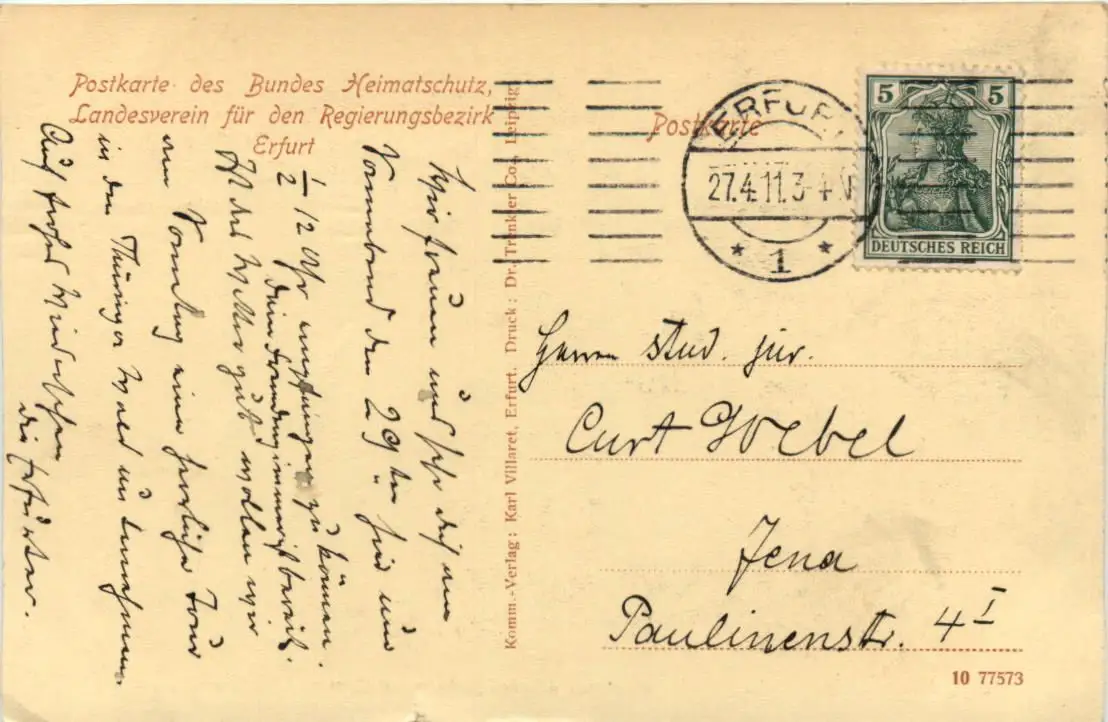 Postkarte des Bundes Heimatschutz,
Landesverein für den Regierungsbezirk
Erfurt
Postkarte
ERFURT
27.4.11.3-4 N
* 1 *
5 5
DEUTSCHES REICH
Komm.-Verlag: Karl Villaret, Erfurt. Druck: Dr. Trenkler Co., Leipzig.
Herrn stud. jur.
Curt Goebel
Jena
Paulinenstr. 4 I
10 77573
Wir freuen uns sehr dich am
Sonnabend den 29ten hier um
1/2 12 Uhr empfangen zu können.
Dein Fremdenzimmer ist bereit.
Ist das Wetter gut wollen wir
am Sonntag eine herrliche Tour
in den Thüringer Wald unternehmen
Auf frohes Wiedersehen
die Erfurter.